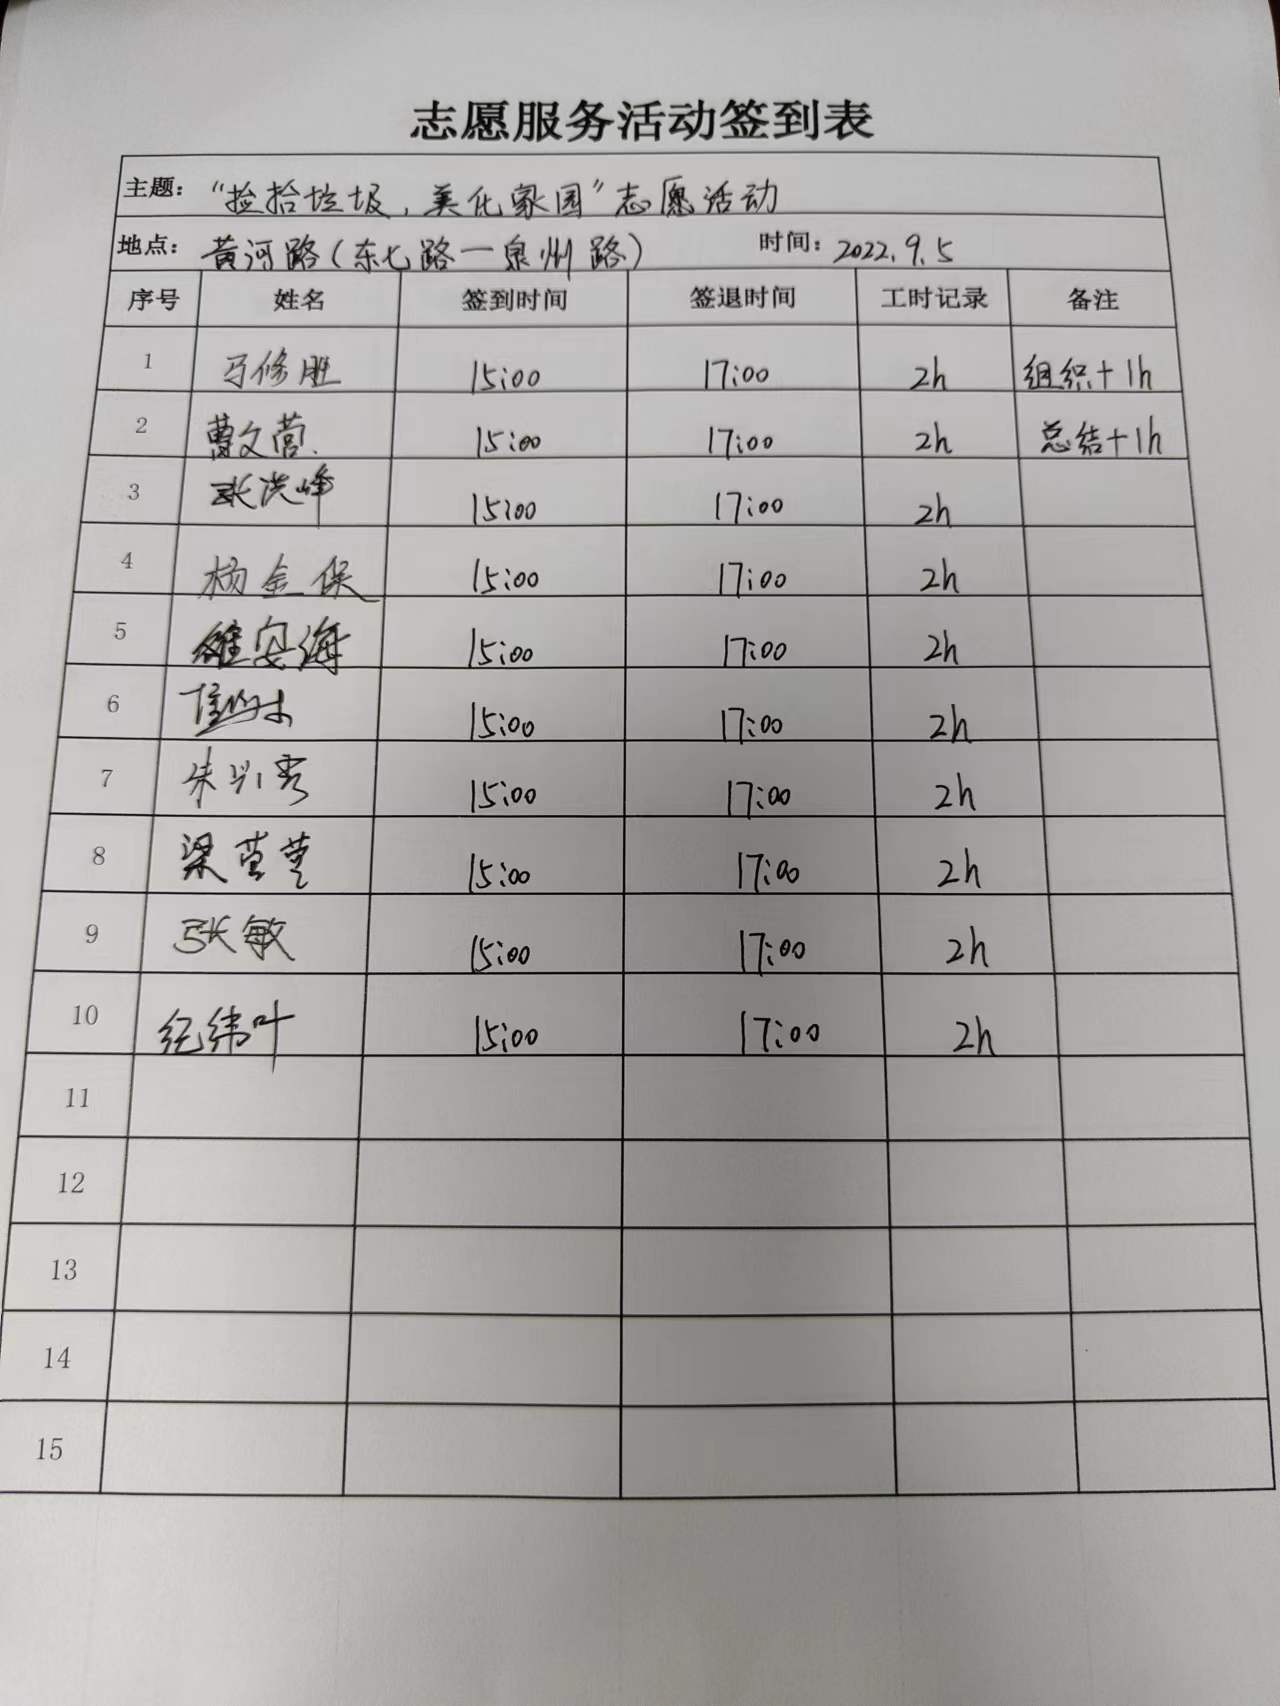 志愿服务活动签到表
主题：“捡拾垃圾，美化家园”志愿活动
地点：黄河路（东七路—泉州路） 时间：2022.9.5
序号 姓名 签到时间 签退时间 工时记录 备注
1 马修胜 15:00 17:00 2h 组织+1h
2 曹文营 15:00 17:00 2h 总结+1h
3 张洪峰 15:00 17:00 2h
4 杨金保 15:00 17:00 2h
5 安海 15:00 17:00 2h
6 15:00 17:00 2h
7 朱兴秀 15:00 17:00 2h
8 梁 15:00 17:00 2h
9 张敏 15:00 17:00 2h
10 纪纬叶 15:00 17:00 2h
11
12
13
14
15